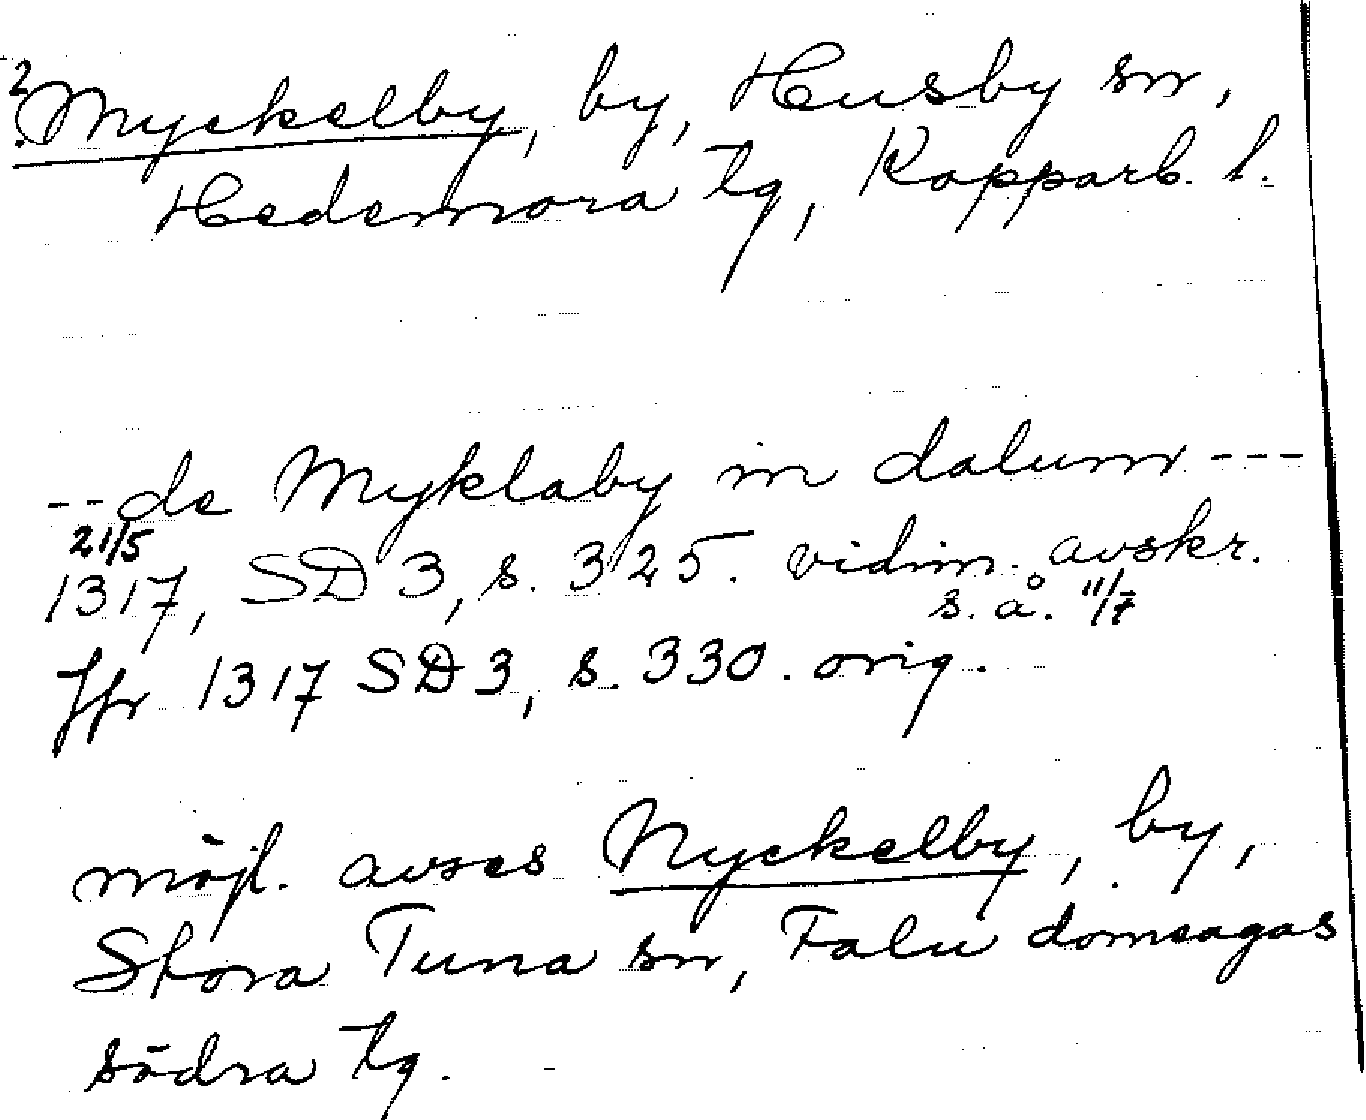 ? Myckelby, by, Husby sn,
Hedemora tg, Kopparb. l.
--de Myklaby in dalum---
21/5
1317, SD 3, s. 325. vidim. avskr.
s. å. 11/7
Jfr 1317 SD 3, s. 330. orig.
möjl. avses Nyckelby, by,
Stora Tuna sn, Falu domsagas
södra tg.